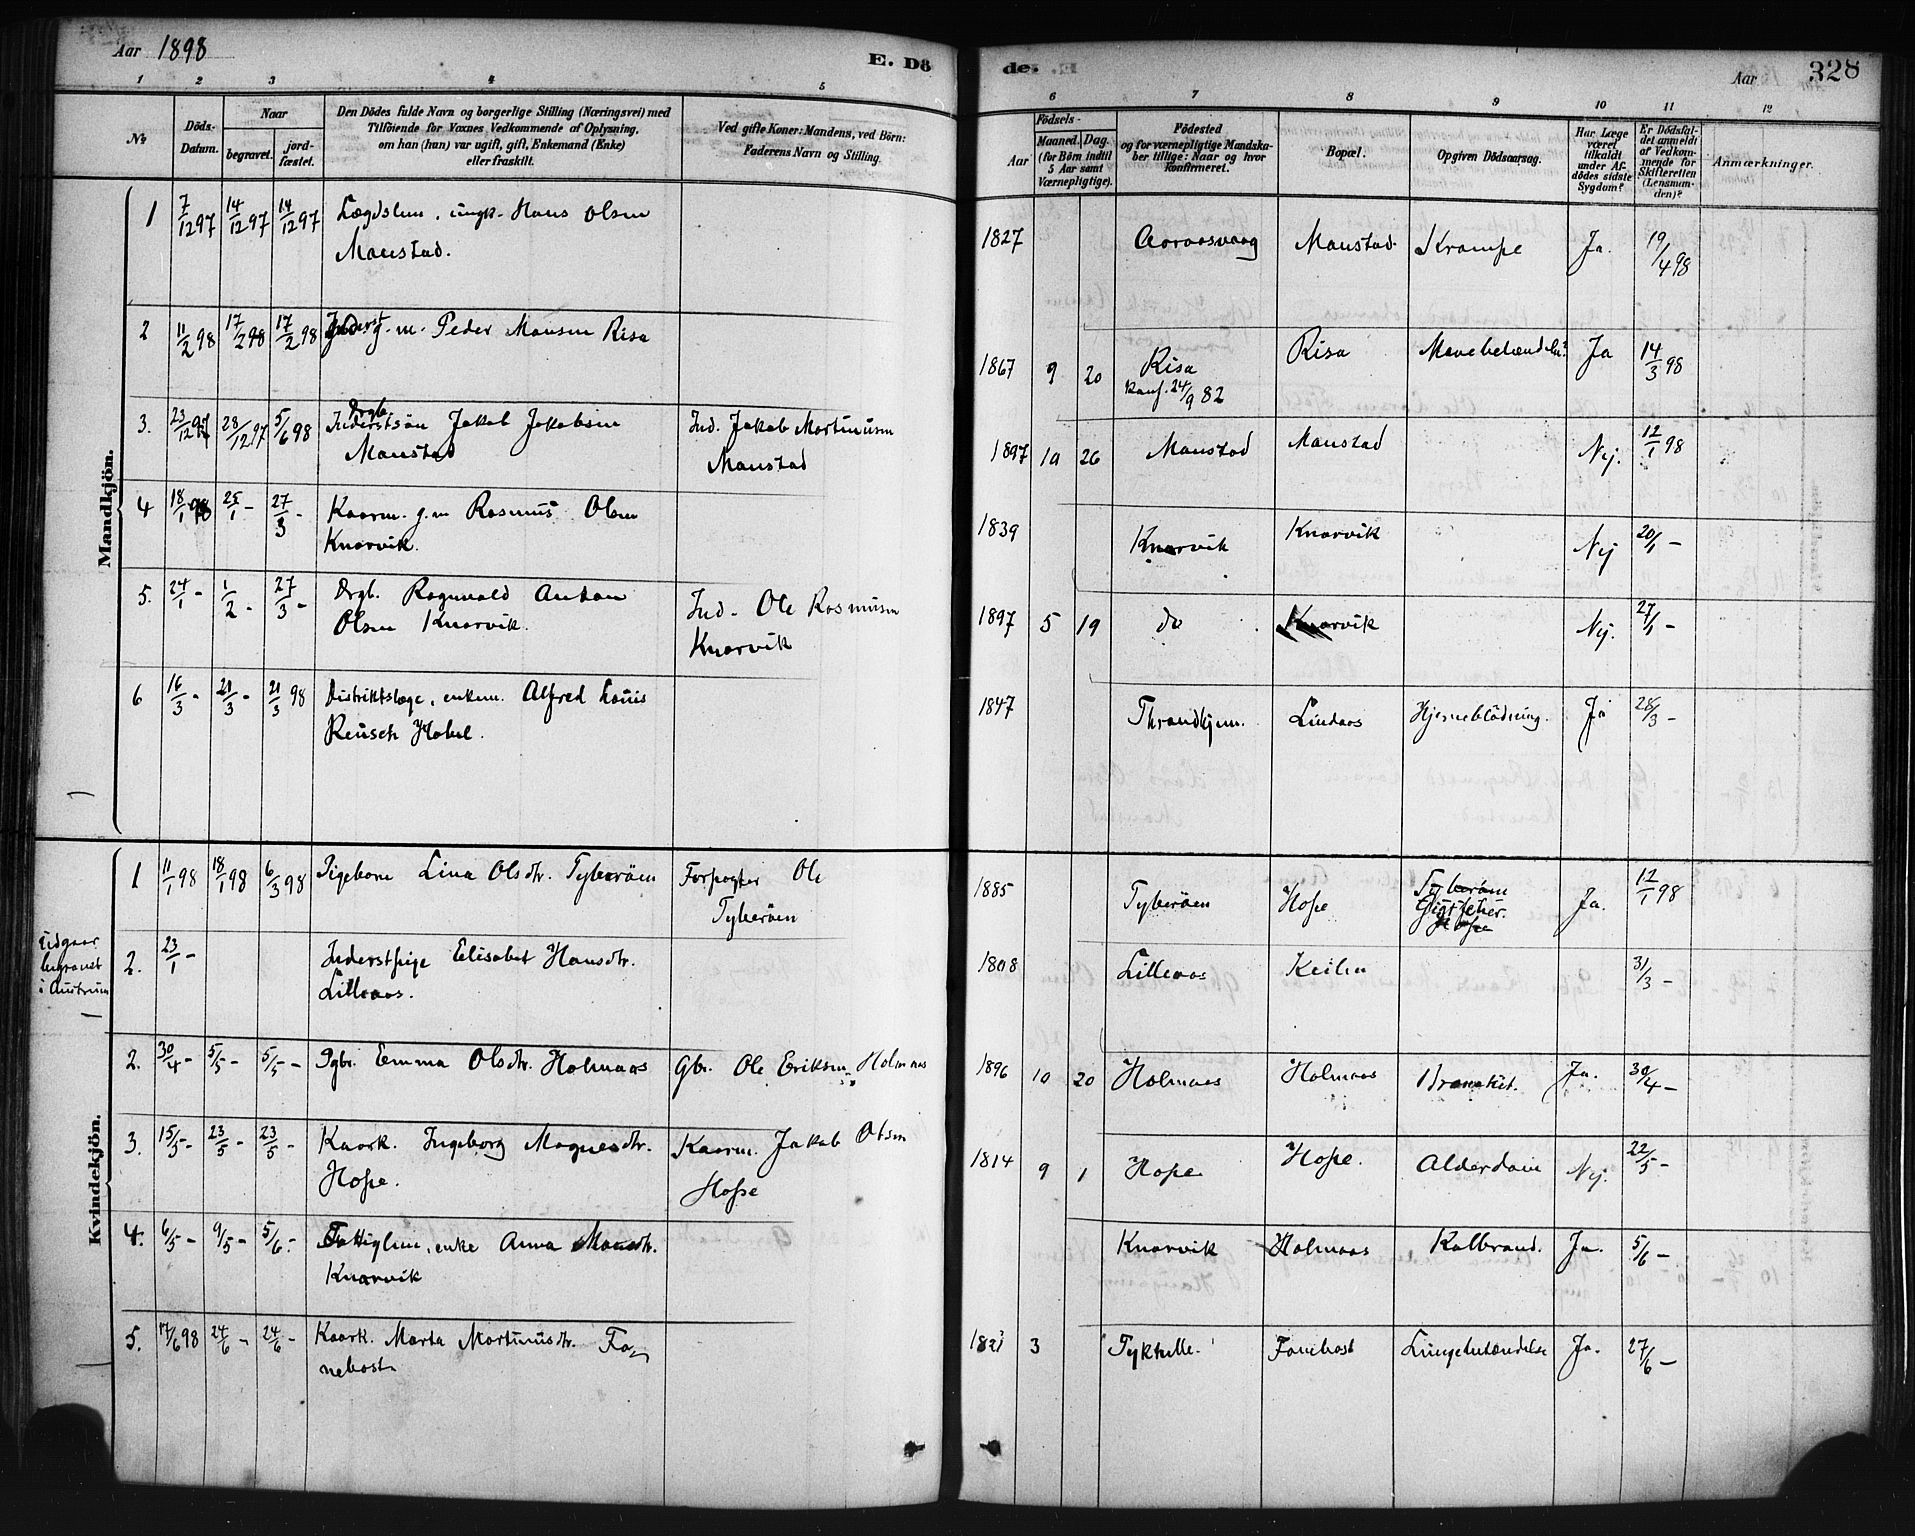 Aar 1898
E. Dö
de.
Aar
328
1 2 3 4 5 6 7 8 9 10 11 12
No
Döds-
Datum.
Naar
begravet.
jord-
fæstet.
Den Dödes fulde Navn og borgerlige Stilling (Næringsvei) med
Tilföiende for Voxnes Vedkommende af Oplysning,
om han (hun) var ugift, gift, Enkemand (Enke)
eller fraskilt.
Ved gifte Koner: Mandens, ved Börn:
Faderens Navn og Stilling.
Födsels-
Aar
Maaned. Dag.
(for Börn indtil
5 Aar samt
Værnepligtige).
Födested
og for værnepligtige Mandska-
ber tillige: Naar og hvor
konfirmeret.
Bopæl.
Opgiven Dödsaarsag.
Har Læge
været
tilkaldt
under Af-
dödes sidste
Sygdom?
Er Dödsfal-
det anmeldt
af Vedkom-
mende for
Skifteretten
(Lensman-
den)?
Anmærkninger.
Mandkjön.
1 7/12 97 14/12 97 14/12 97 Lægdslem, ungk. Hans Olsen
Manstad.
1827 Manstad Krampe Ja. 19/4 98
2 11/2 98 17/2 98 17/2 98 Inderst g.m. Peder Monsen Risa
1867 9 20 Risa
konf. 24/9 82
Risa Ja 14/3 98
3. 23/12 97 28/12 97 5/6 98 Drgb.
Inderstsön Jakob Jakobsen
Manstad
Ind. Jakob Martinusen
Manstad
1897 10 26 Manstad Manstad Nej. 12/1 98
4 18/1 98 25/1 - 27/3 - Kaarm. g.m Rasmus Olsen
Knarvik.
1839 Knarvik Knarvik Nej 20/1 -
5. 24/1 - 1/2 - 27/3 - Drgb. Ragnvald Anton
Olsen Knarvik.
Ind. Ole Rasmusen
Knarvik
1897 5 19 do Knarvik Nej. 27/1 -
6 16/3 - 21/3 - 21/3 98 Distriktslæge, enkem. Alfred Louis
Reusch Hobel.
1847 Throndhjem. Lindaas Hjerneblödning. Ja 28/3 -
Kvindekjön.
1 11/1 98 18/1 98 6/3 98 Pigebarn Lina Olsdtr. Tyberöen
Forpagter Ole
Tyberöen
1885 Tyberöen Hope Tyberöen
Gigtfeber.
Hope
Ja. 12/1 98
Udgaar
begravet
i Austrum
2. 23/1 - Inderstpige Elisabet Hansdtr.
Lilleaas.
1808 Lilleaas 31/3 -
2. 30/4 - 5/5 - 5/5 - Pgb. Emma Olsdtr. Holmaas
Gbr. Ole Eriksen Holmaas
1896 10 20 Holmaas Holmaas Ja. 30/4 -
3. 15/5 - 23/5 - 23/5 - Kaark. Ingeborg Magnesdtr.
Hope.
Kaarm. Jakob Olsen
Hope
1814 9 1 Hope Hope. Alderdom Nej. 22/5 -
4. 6/5 - 9/5 - 5/6 - Fattiglem, enke Anna Monsdtr.
Knarvik
Knarvik Holmaas Kolbrand. Ja. 5/6 -
5. 17/6 98 24/6 - 24/6 - Kaark. Marta Martinusdtr. Fo-
nebost
3 Fonebost Lungebetændelse Ja. 27/6 -